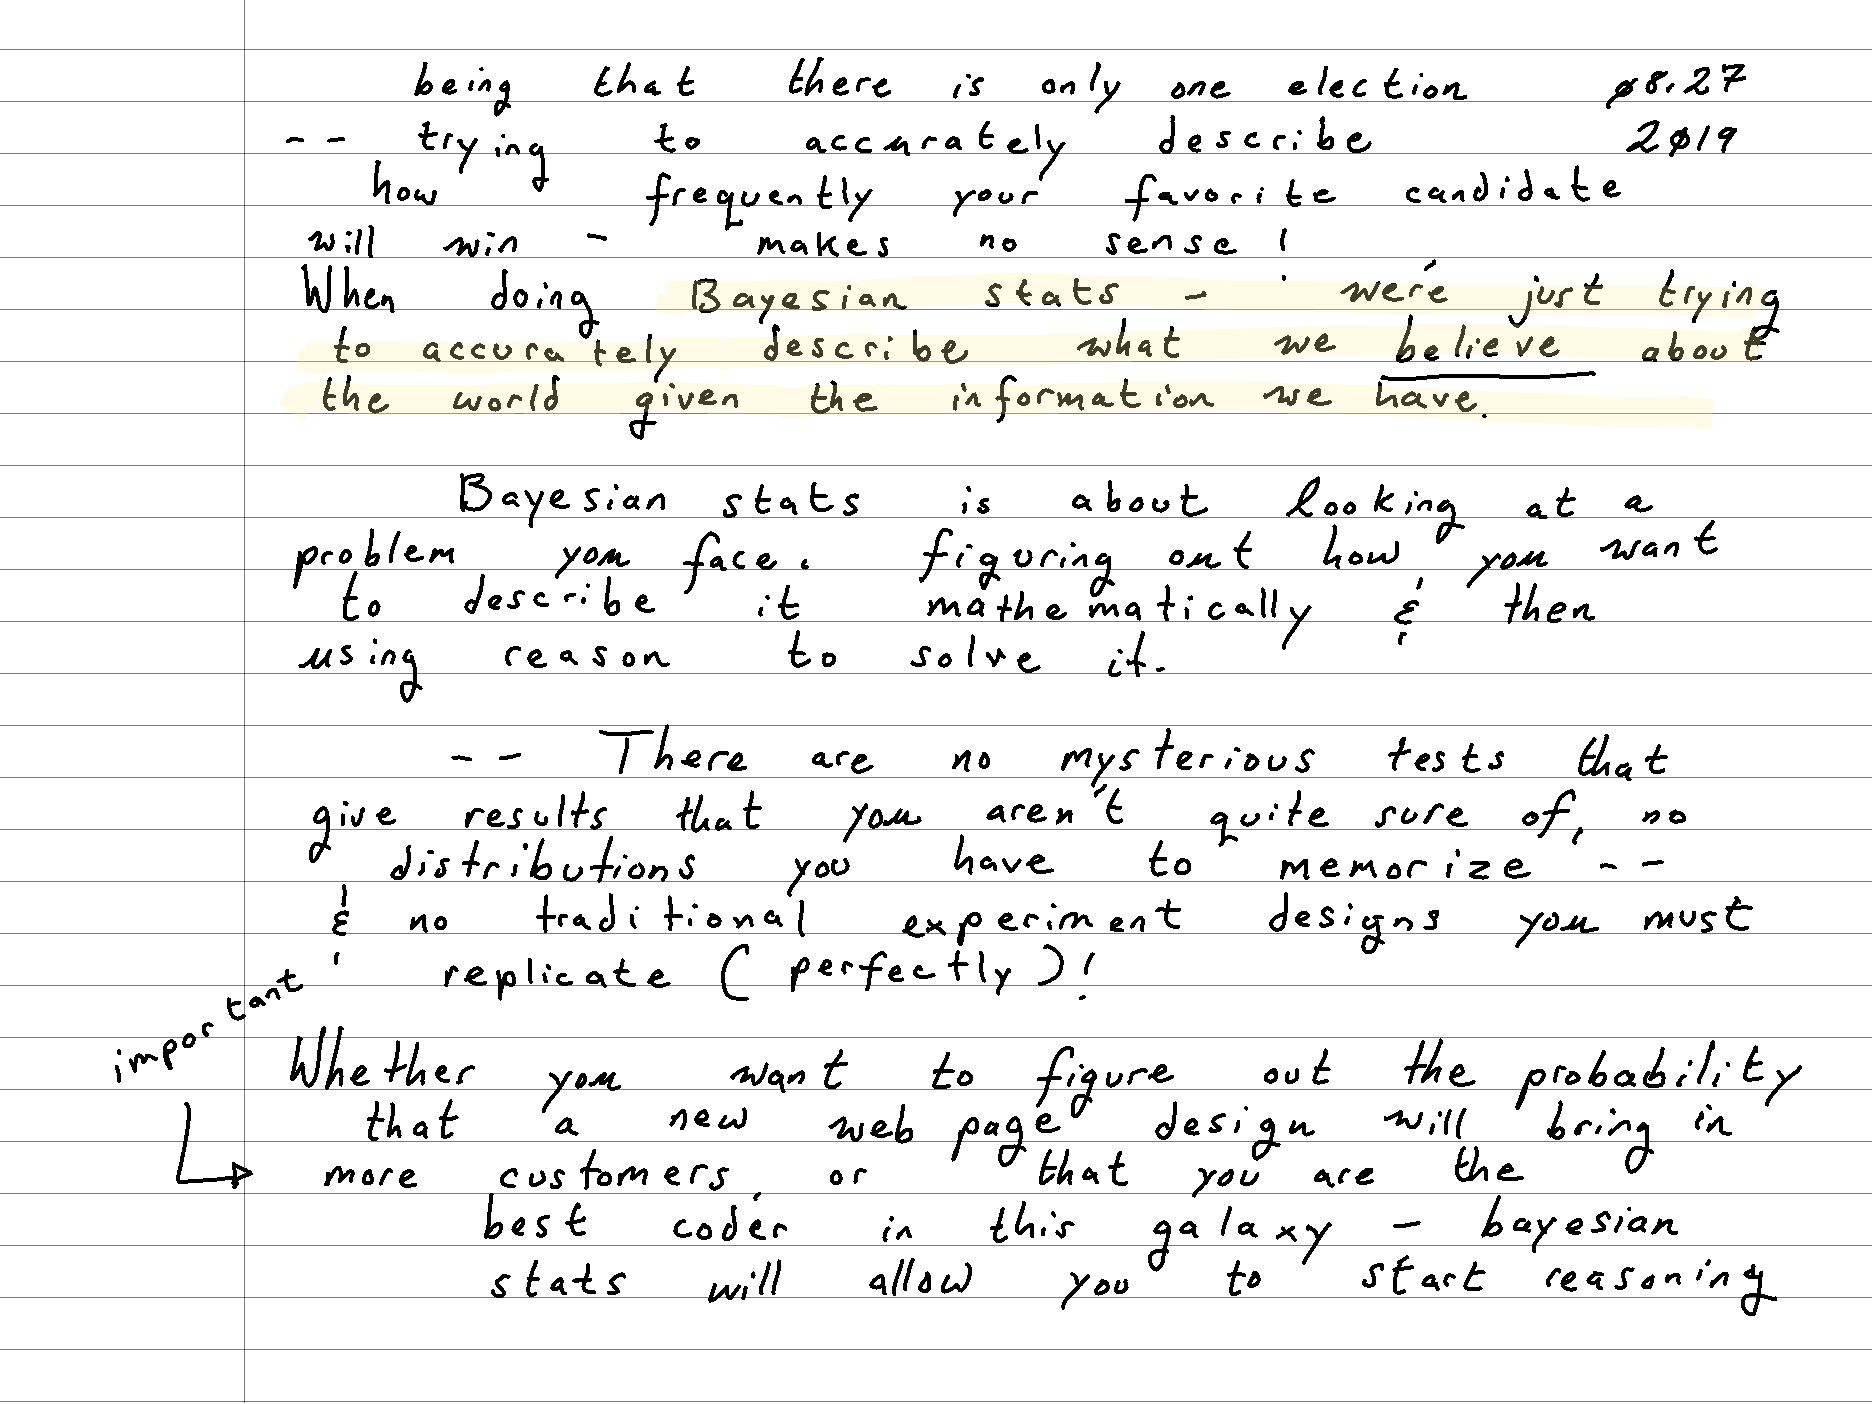 being that there is only one election 08.27
-- trying to accurately describe 2019
how frequently your favorite candidate
will win - makes no sense!
When doing Bayesian stats - we're just trying
to accurately describe what we believe about
the world given the information we have.
Bayesian stats is about looking at a
problem you face. figuring out how you want
to describe it mathematically & then
using reason to solve it.
-- There are no mysterious tests that
give results that you aren't quite sure of, no
distributions you have to memorize --
& no traditional experiment designs you must
replicate (perfectly)!
important
Whether you want to figure out the probability
that a new web page design will bring in
more customers, or that you are the
best coder in this galaxy - bayesian
stats will allow you to start reasoning